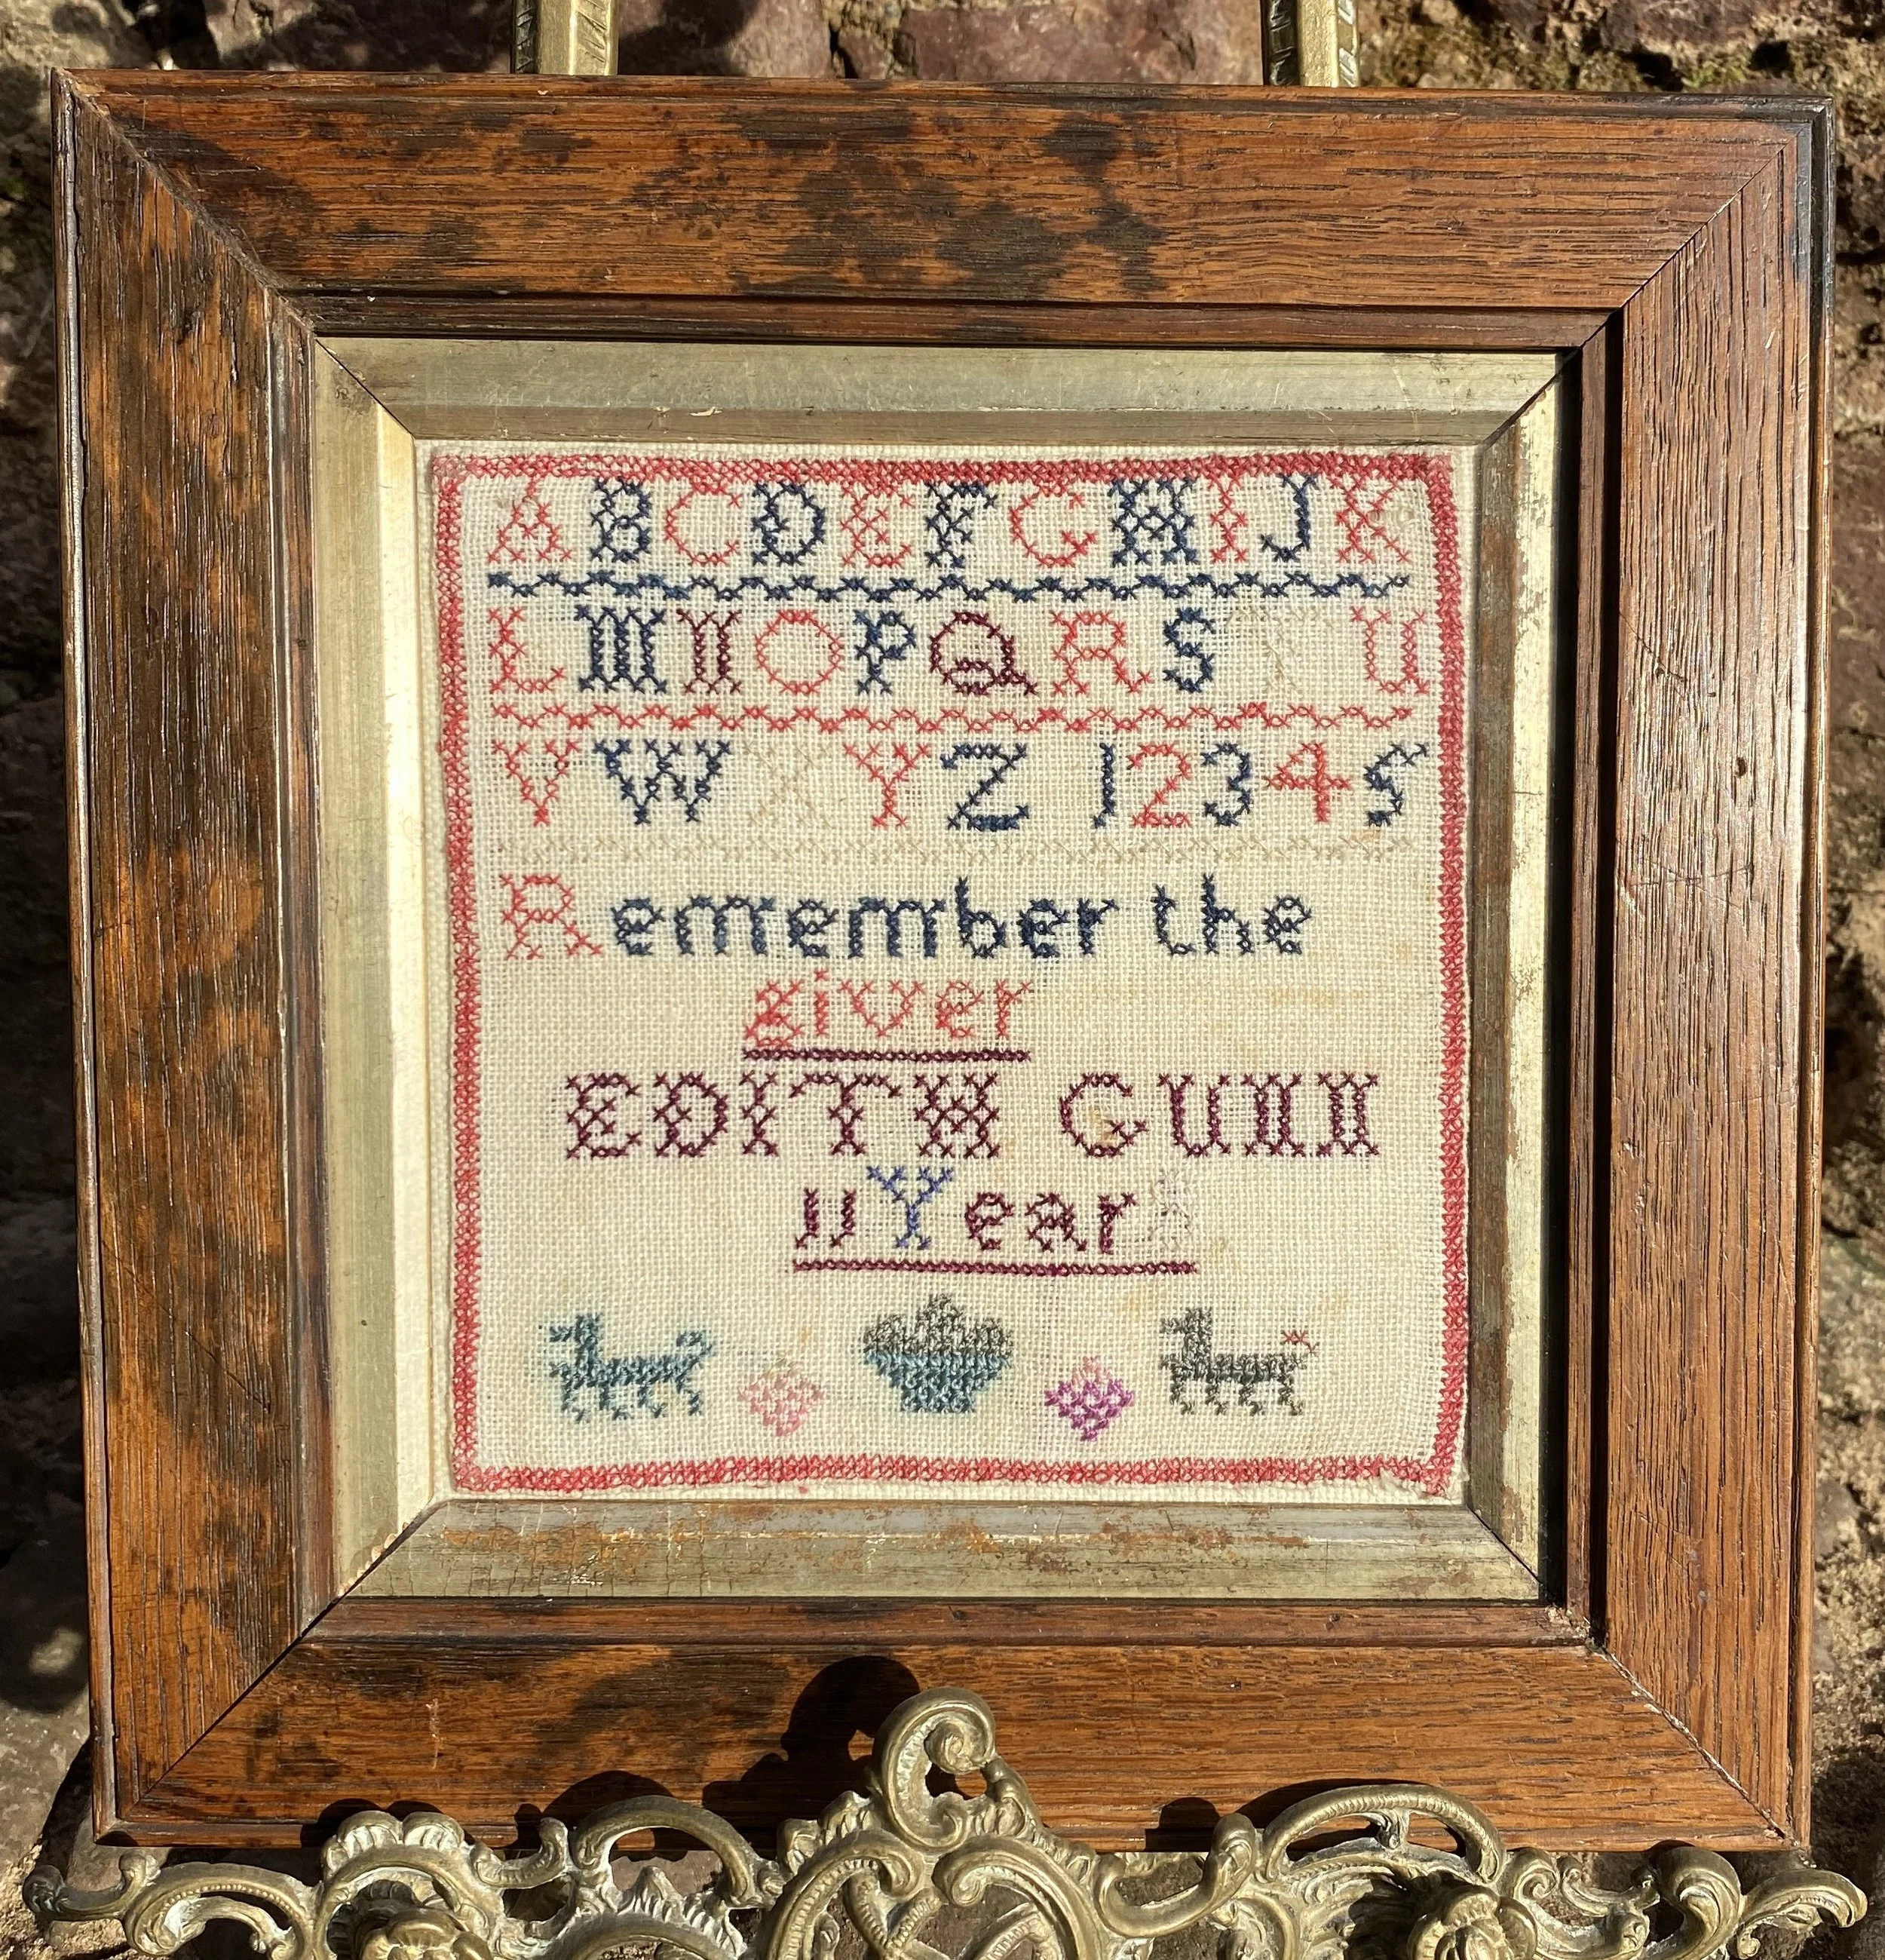 A B C D E F G H I J K
L M N O P Q R S T U
V W X Y Z 1 2 3 4 5
Remember the
giver
EDITH GUNN
11 Years